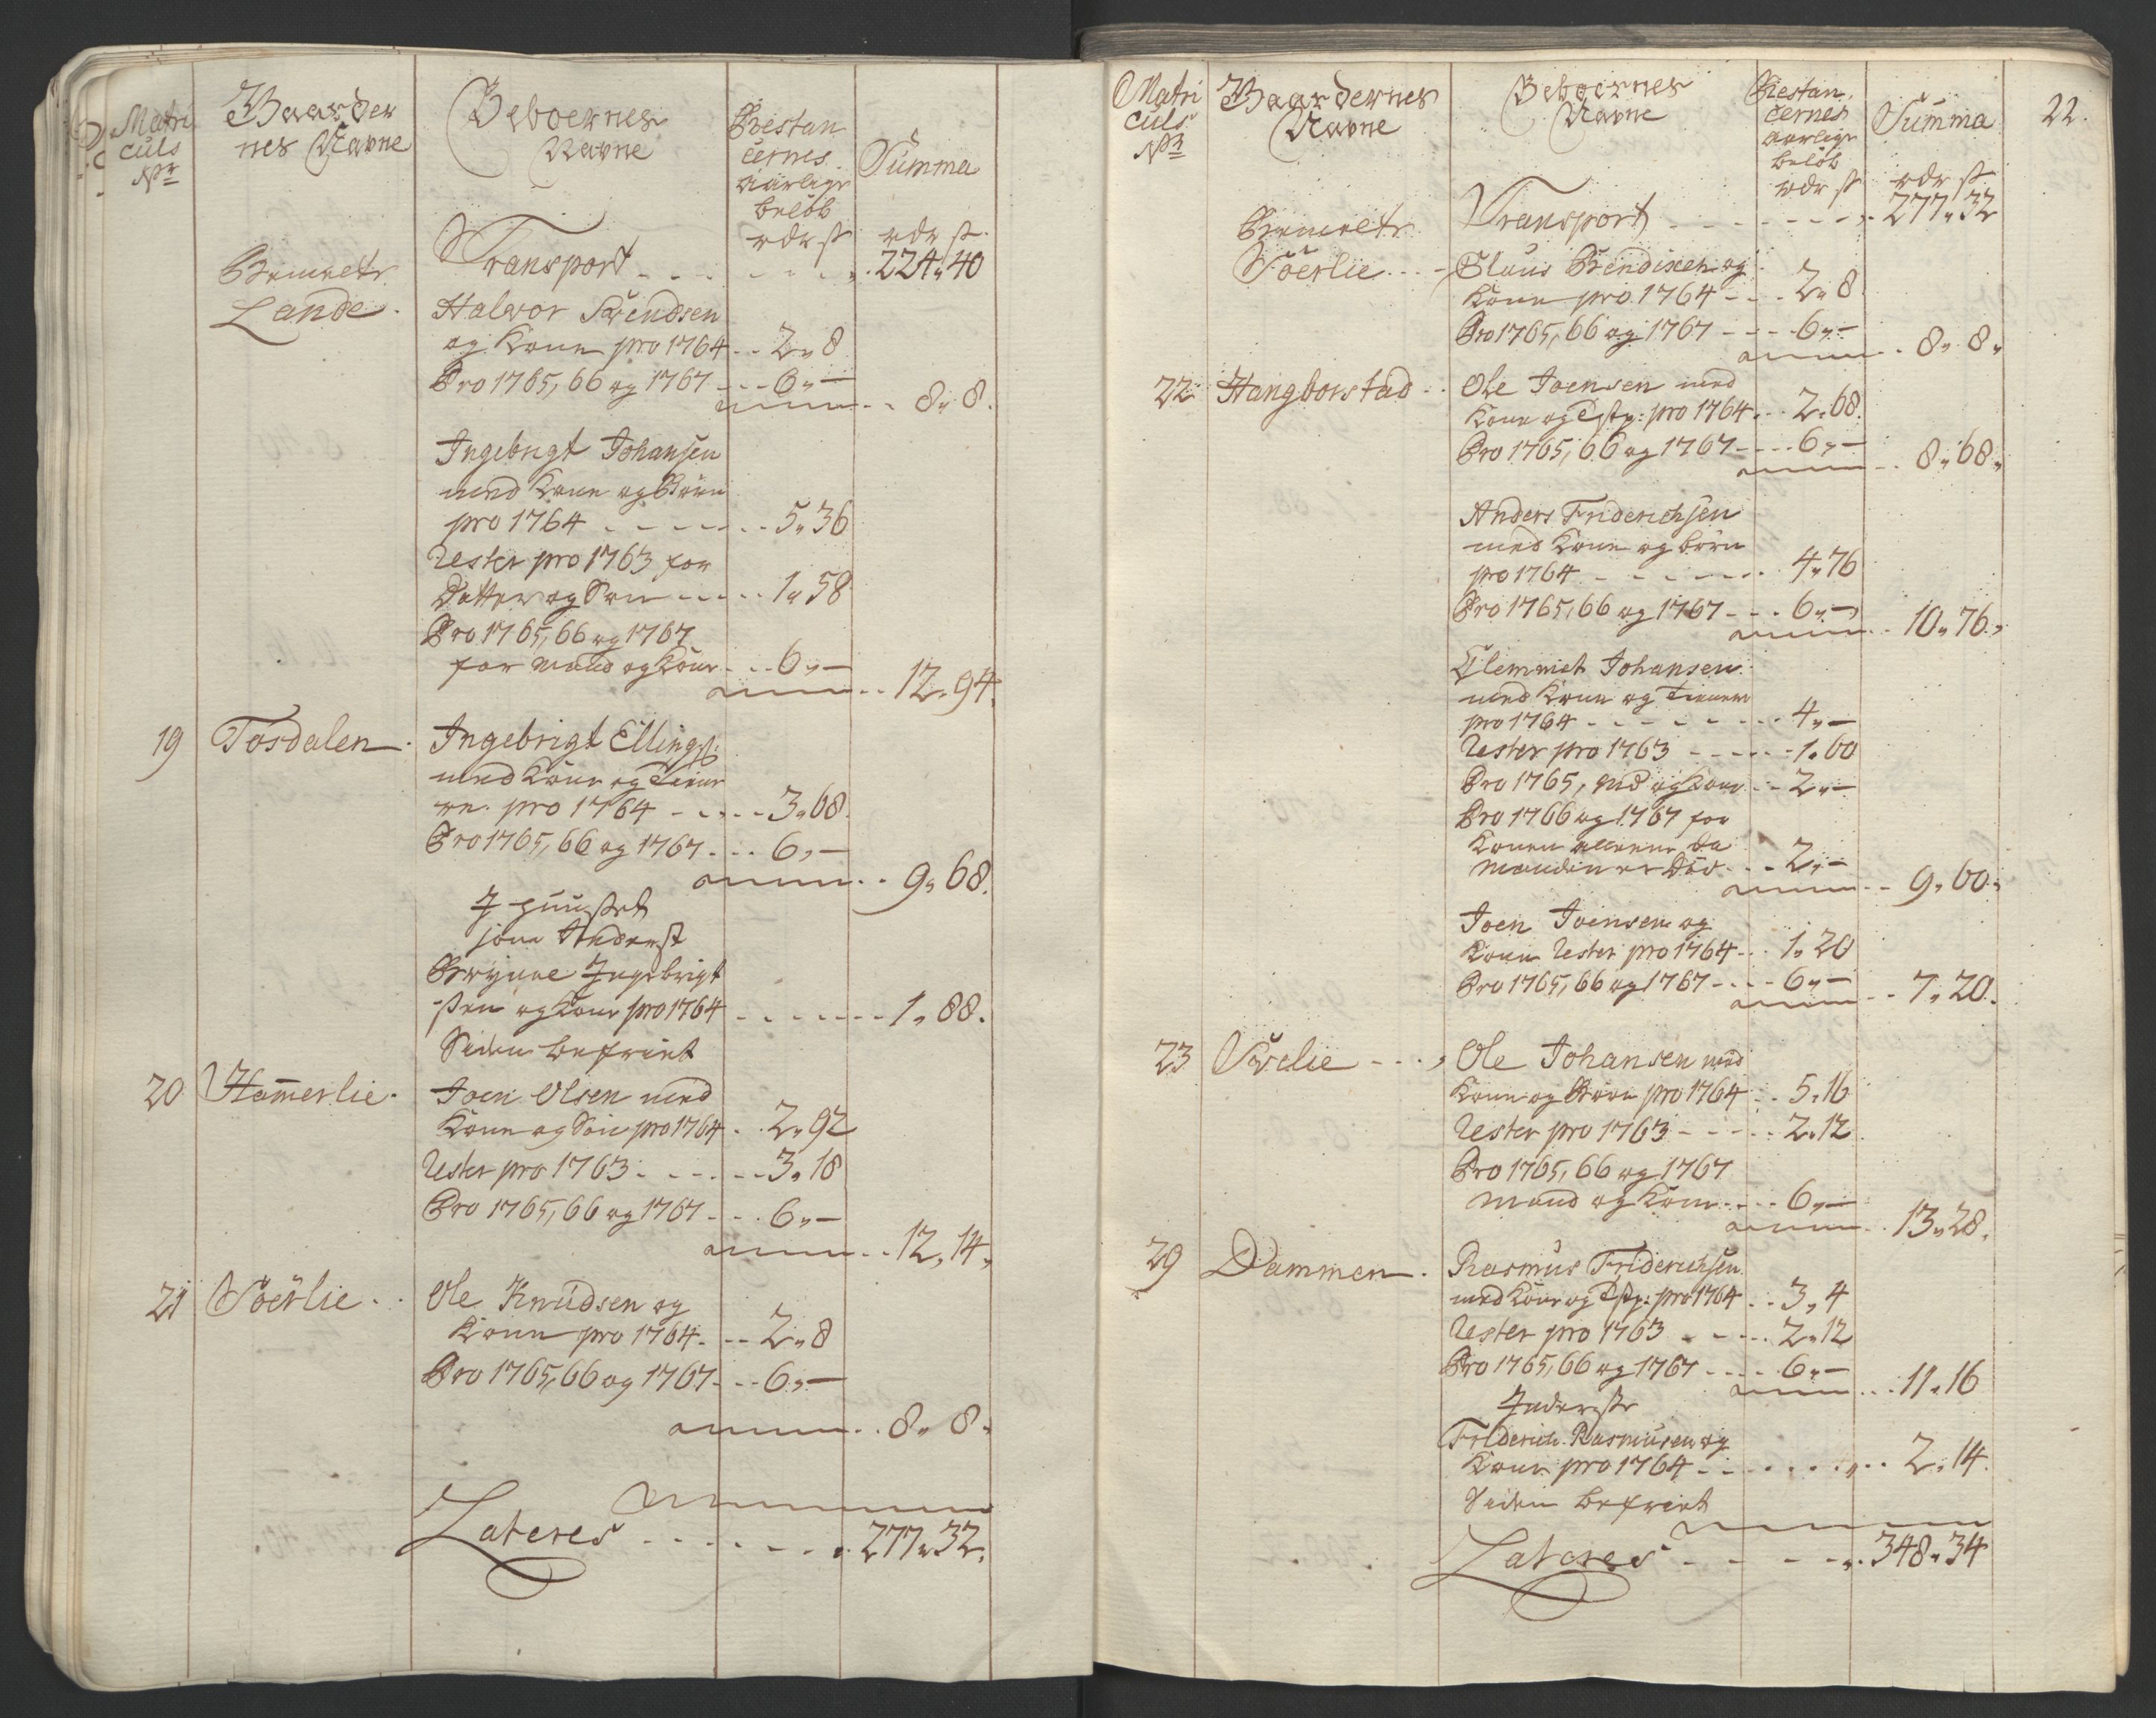 Matri
culs
Nr
Gaarder
nes Navne
Beboernes
Navne
Restan
cernes
aarlige
beløb
rdr ß
Summa
rdr ß
Transport - - - 224 „ 40
Lande.
Halvor Svendsen
og Kone pro 1764 - - 2 „ 8
Pro 1765, 66 og 1767 - - - 6 „ —
8 „ 8.
Ingebrigt Johansen
med Kone og Børn
pro 1764 - - - - 5 „ 36
Rester pro 1763 for
Datter og Søn - - - - 1 „ 58
Pro 1765, 66 og 1767
for Mand og Kone - - 6 „ —
12 „ 94.
19 Tosdalen. Ingebrigt Ellings:
med Kone og Tiene
re. pro 1764 - - - - 3 „ 68.
Pro 1765, 66 og 1767 - - - 6 „ —
9 „ 68.
I Huuset
Brynne Ingebrigt
sen og Kone pro 1764 - - - - - - 1 „ 88.
Siden befriet
20 Ham̄erlie. Joen Olsen med
Kone og Søn pro 1764 - - 2 „ 92
Rester pro 1763 - - - - - 3 „ 18
Pro 1765, 66 og 1767 - - - 6 „ —
12 „ 14 „
21 Söerlie - - Ole Knudsen og
Kone pro 1764 - - - 2 „ 8
Pro 1765, 66 og 1767 - - - 6 „ —
8 „ 8 „
Lateres - - - - - - 277 „ 32.
22.
Matri
culs
Nr
Gaardernes
Navne
Beboernes
Navne
Restan
cernes
aarlige
beløb
rdr ß
Summa
rdr ß
Transport - - - - - - 277 „ 32
Söerlie - - - Claus Bendixen og
Kone pro 1764 - - - 2 „ 8
Pro 1765, 66 og 1767 - - - 6 „ —
8 „ 8 „
22 Hangborstad - - Ole Joensen med
Kone og Dsty: pro 1764 - - 2 „ 68.
Pro 1765, 66 og 1767 - - - - 6 „ —
8 „ 68 „
Anders Friderichsen
med Kone og børn
pro 1764 - - - - - - 4 „ 76
Pro 1765, 66 og 1767 - - - 6 „ —
10 „ 76 „
Clemmet Johansen
med Kone og Tienere
pro 1764 - - - - - - - 4 „ —
Rester pro 1763 - - - - - 1 „ 60
Pro 1765, Md og Kone - - 2 „ —
Pro 1766 og 1767 for
Konen alleene da
Manden er Død - - - 2 „ —
9 „ 60 „
Joen Joensen og
Kone Rester pro 1764 - - 1 „ 20
Pro 1765, 66 og 1767 - - - - 6 „ —
7 „ 20.
23 Svelie - - - Ole Johansen med
Kone og Børn pro 1764 - - 5 „ 16
Rester pro 1763 - - - - - 2 „ 12
Pro 1765, 66 og 1767
Mand og Kone - - - - 6 „ —
13 „ 28.
29 Dammen. Rasmus Friderichsen
med Kone og Dsty: pro 1764 - - 3 „ 4
Rester pro 1763 - - - - 2 „ 12
Pro 1765, 66 og 1767 - - - - 6 „ —
11 „ 16
Inderste
Friderich Rasmusen og
Kone pro 1764 - - - - - - - - 2 „ 14.
Siden befriet
Lateres - - - - - 348 „ 34